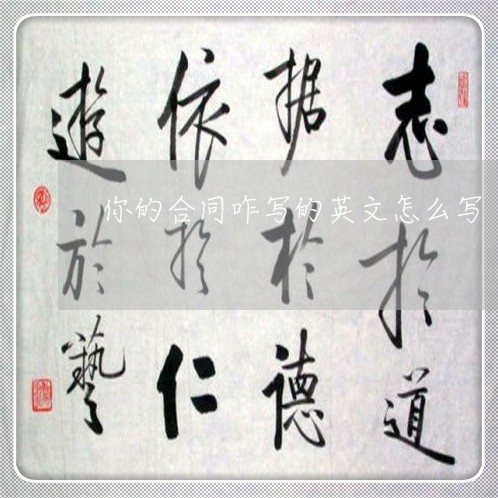 志於道
据於德
依於仁
遊於藝
你的合同咋写的英文怎么写